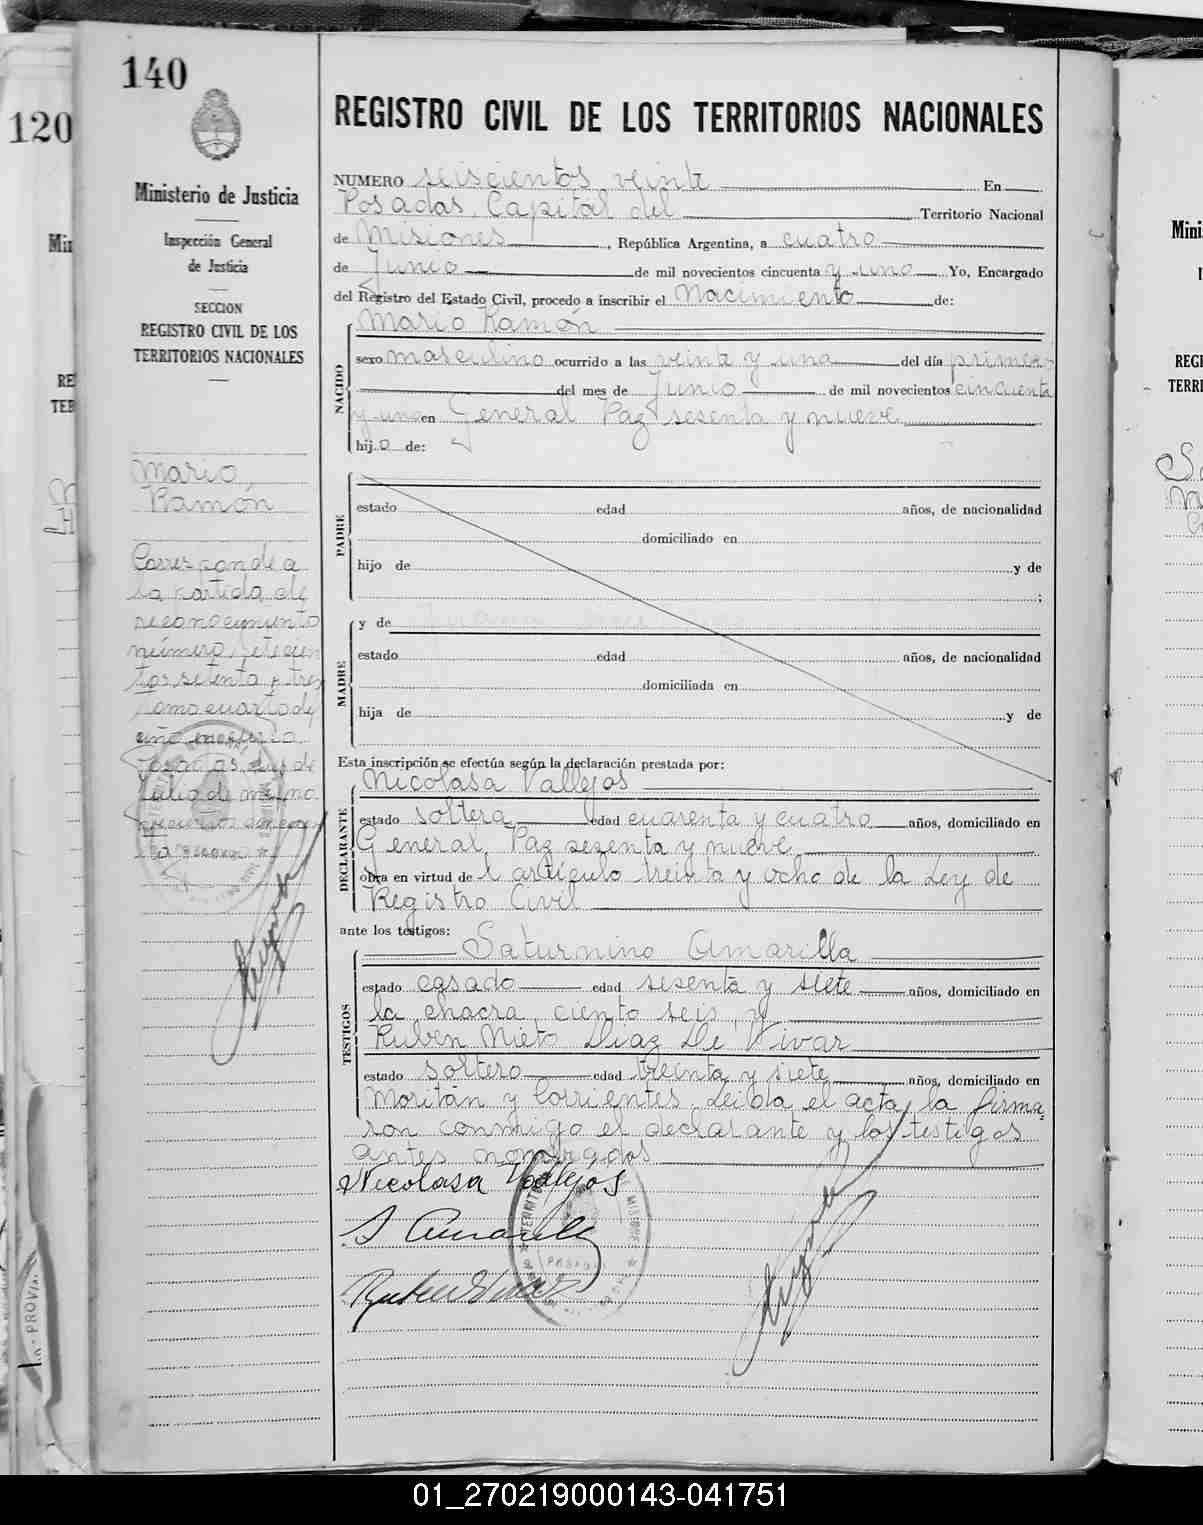 140
120
Ministerio de Justicia
Inspección General
de Justicia
SECCION
REGISTRO CIVIL DE LOS
TERRITORIOS NACIONALES
Mario
Ramón
Corresponde a
la partida de
reconocimiento
número setecien
tos setenta y tres
tomo cuarto del
año
Posadas, de
Julio de mil no
vecientos cincuen
ta
REGISTRO CIVIL DE LOS TERRITORIOS NACIONALES
NUMERO seiscientos veinte En
Posadas, Capital del Territorio Nacional
de Misiones, República Argentina, a cuatro
de Junio de mil novecientos cincuenta y uno Yo, Encargado
del Registro del Estado Civil, procedo a inscribir el Nacimiento de:
NACIDO
Mario Ramón
sexo masculino ocurrido a las veinte y una del día primero
del mes de Junio de mil novecientos cincuenta
y uno en General Paz sesenta y nueve
hijo de:
PADRE
estado edad años, de nacionalidad
domiciliado en
hijo de y de
;
MADRE
y de
estado edad años, de nacionalidad
domiciliada en
hija de y de
Esta inscripción se efectúa según la declaración prestada por:
DECLARANTE
Nicolasa Vallejos
estado soltera edad cuarenta y cuatro años, domiciliado en
General Paz sesenta y nueve
obra en virtud del artículo treinta y ocho de la Ley de
Registro Civil
ante los testigos:
TESTIGOS
Saturnino Amarilla
estado casado edad sesenta y siete años, domiciliado en
la chacra ciento seis, y
Ruben Nieto Diaz De Vivar
estado soltero edad treinta y siete años, domiciliado en
Moritán y Corrientes. Leída el acta, la firma
ron conmigo el declarante y los testigos
antes nombrados
Nicolasa Vallejos
S Amarilla
MISIONES
POSADAS
01_270219000143-041751